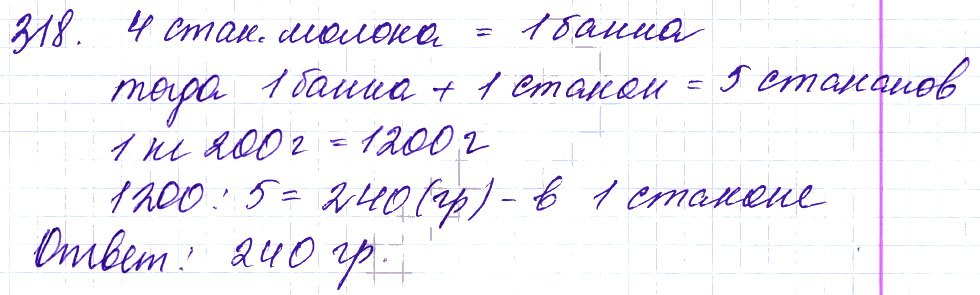 318. 4 стак. молока = 1 банка
тогда 1 банка + 1 стакан = 5 стаканов
1 кг 200 г = 1200 г
1200 : 5 = 240 (гр) - в 1 стакане
Ответ: 240 гр.